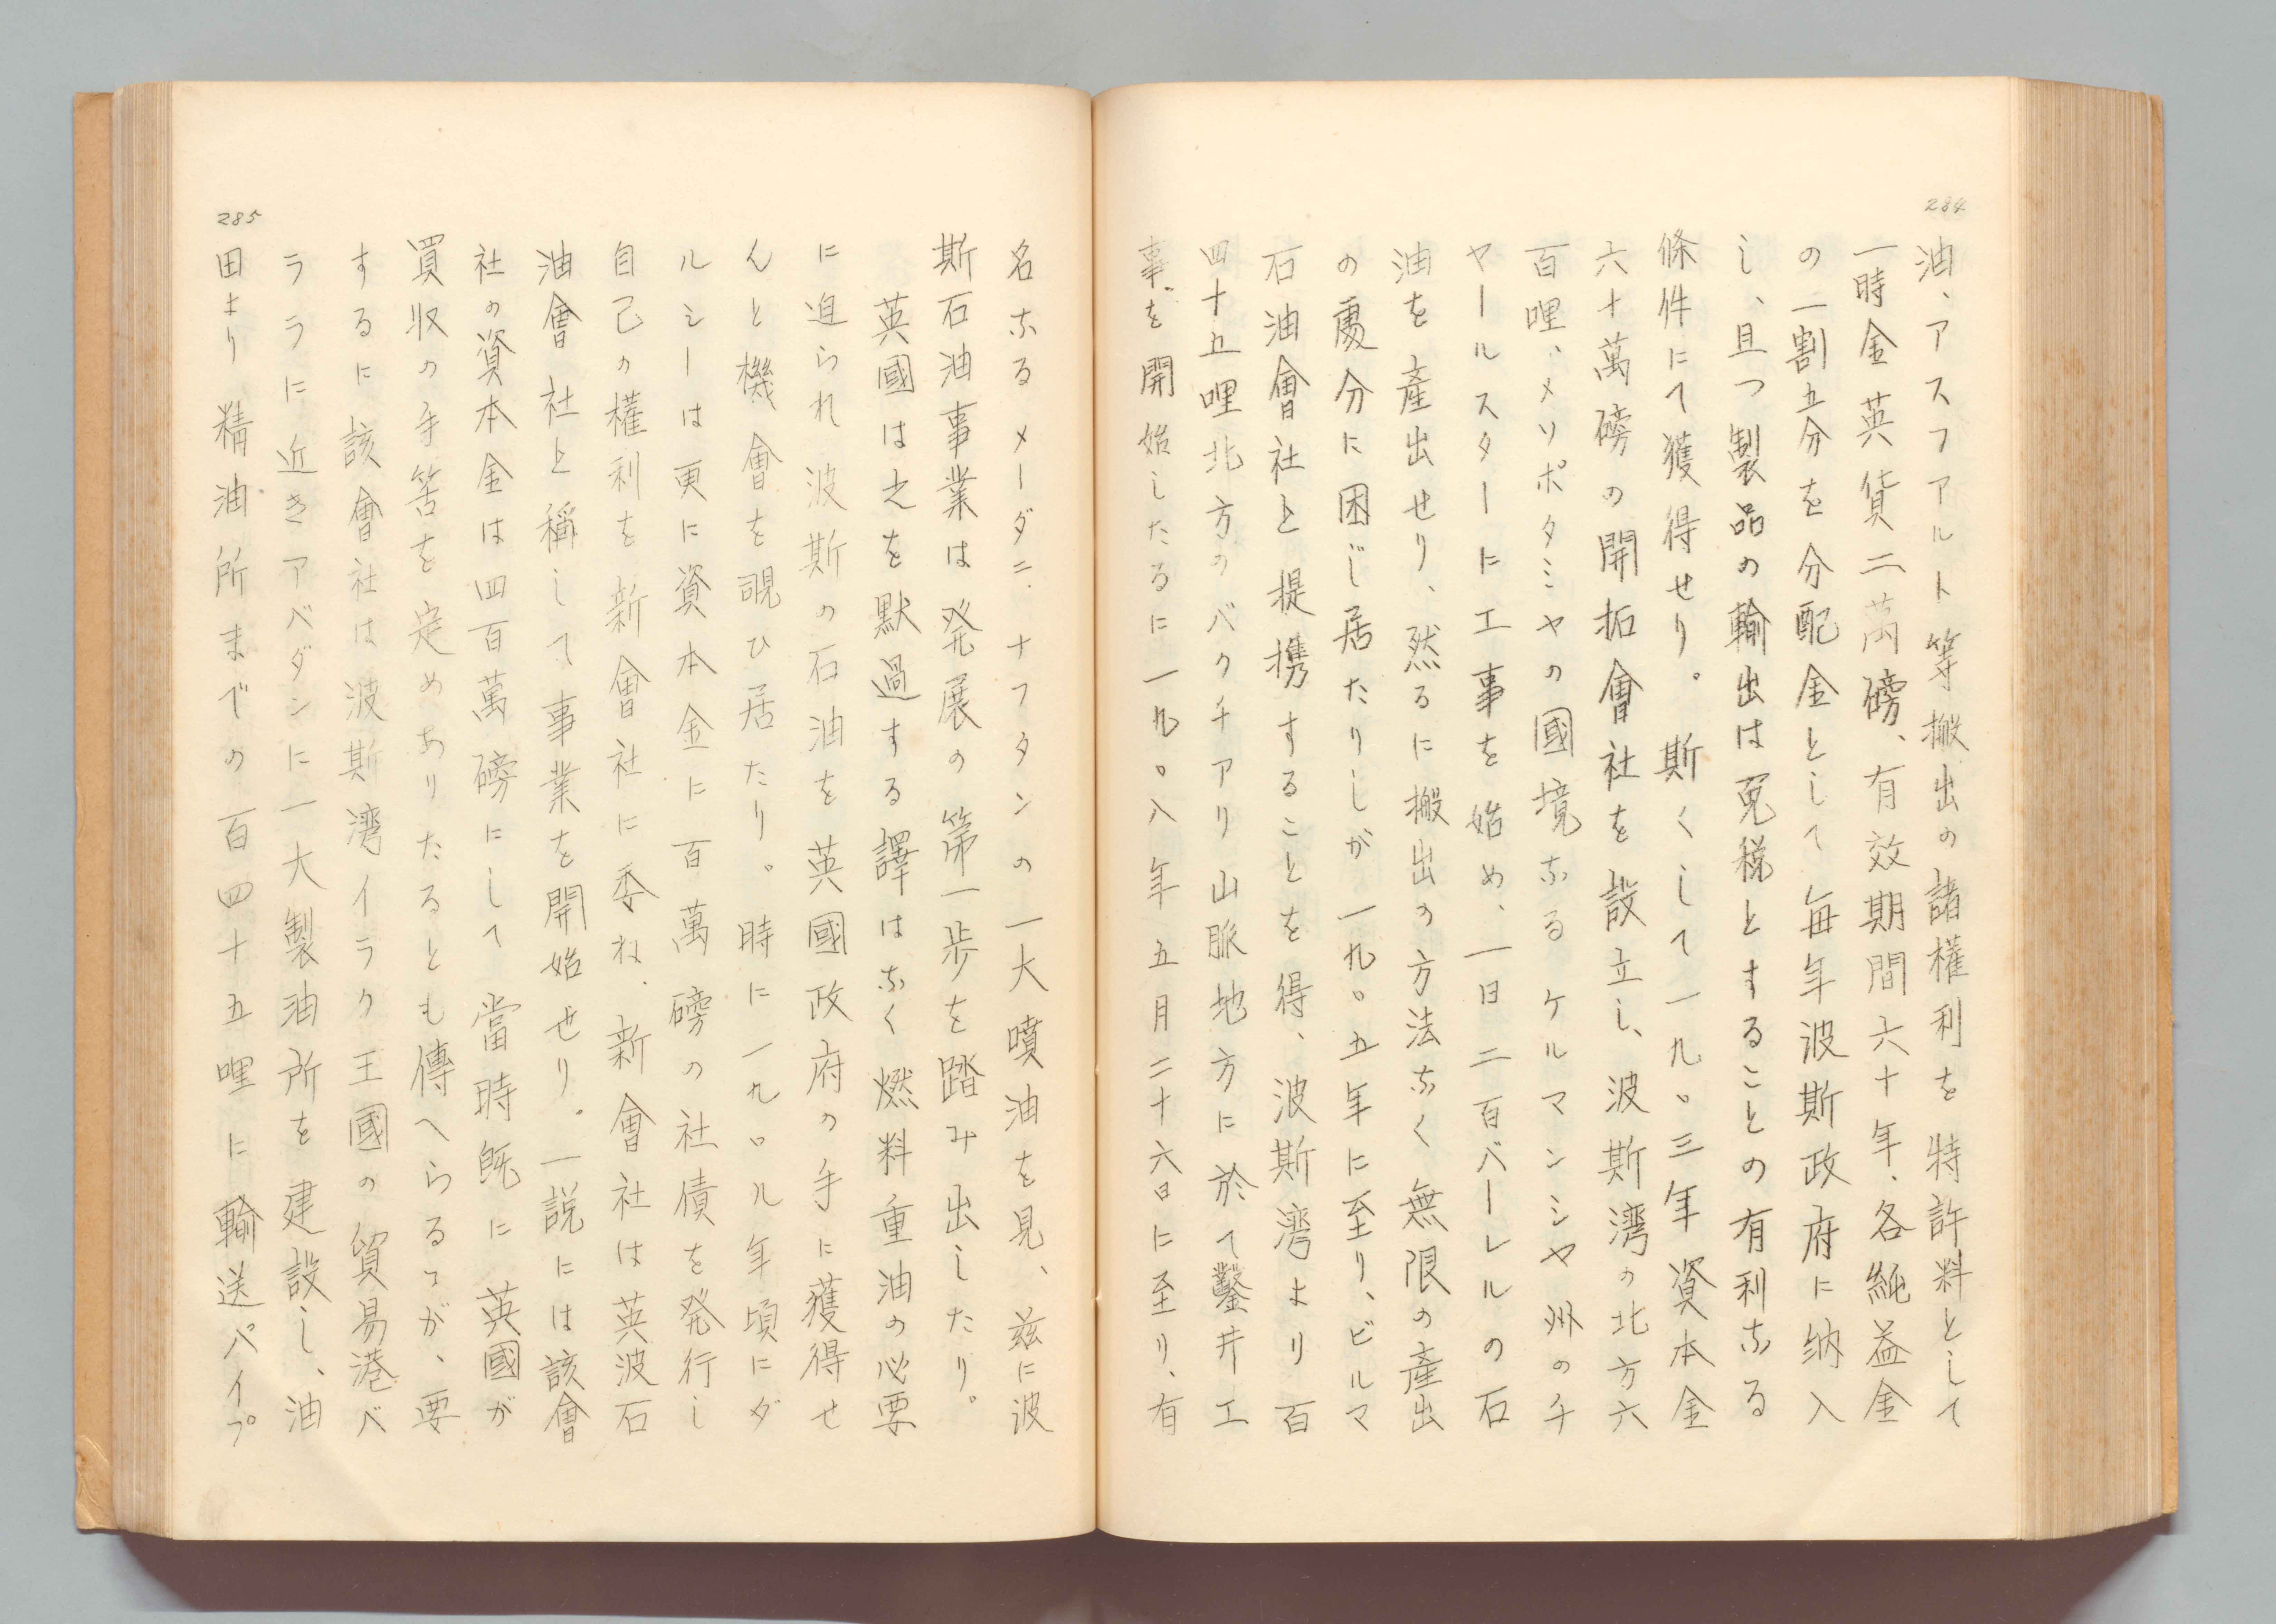 284
油、アスファルト等搬出の諸權利を特許料として
一時金英貨二萬磅、有效期間六十年、各純益金
の一割五分を分配金として毎年波斯政府に納入
し、且つ製品の輸出は免税とすることの有利なる
條件にて獲得せり。斯くして一九〇三年資本金
六十萬磅の開拓會社を設立し、波斯湾の北方六
百哩、メソポタミヤの國境なるケルマンシヤ州のチ
ヤールスターに工事を始め、一日二百バーレルの石
油を產出せり、然るに搬出の方法なく無限の產出
の處分に困じ居たりしが一九〇五年に至り、ビルマ
石油會社と提携することを得、波斯湾より百
四十五哩北方のバクチアリ山脈地方に於て鑿井工
事を開始したるに一九〇八年五月二十六日に至り、有
285
名なるメーダニ、ナフタンの一大噴油を見、茲に波
斯石油事業は発展の第一歩を踏み出したり。
英國は之を默過する譯はなく燃料重油の必要
に迫られ波斯の石油を英國政府の手に獲得せ
んと機會を覗ひ居たり。時に一九〇九年頃にダ
ルシーは更に資本金に百萬磅の社債を発行し
自己の權利を新會社に委ね、新會社は英波石
油會社と稱して事業を開始せり。一説には該會
社の資本金は四百萬磅にして當時既に英國が
買収の手筈を定めありたるとも傳へらるゝが、要
するに該會社は波斯湾イラク王國の貿易港バ
ララに近きアベダンに一大製油所を建設し、油
田より精油所までの百四十五哩に輸送パイプ